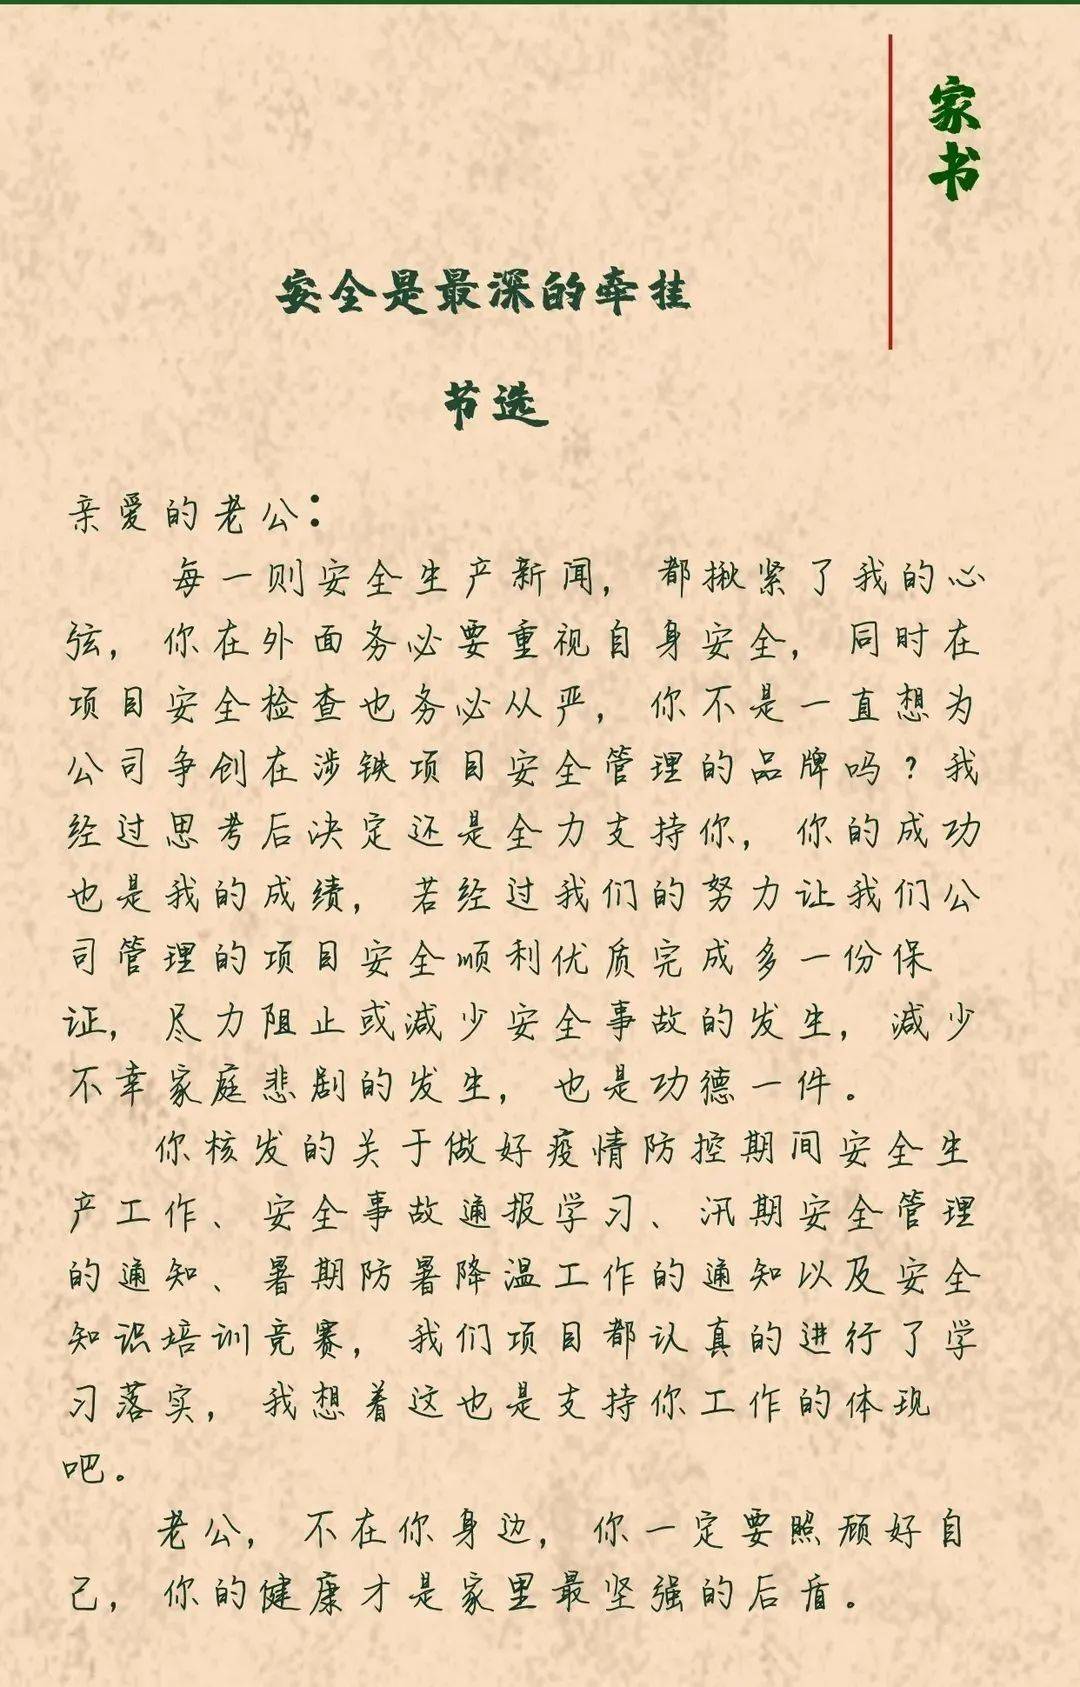 家书
安全是最深的牵挂
节选
亲爱的老公：
每一则安全生产新闻，都揪紧了我的心
弦，你在外面务必要重视自身安全，同时在
项目安全检查也务必从严，你不是一直想为
公司争创在涉铁项目安全管理的品牌吗？我
经过思考后决定还是全力支持你，你的成功
也是我的成绩，若经过我们的努力让我们公
司管理的项目安全顺利优质完成多一份保
证，尽力阻止或减少安全事故的发生，减少
不幸家庭悲剧的发生，也是功德一件。
你核发的关于做好疫情防控期间安全生
产工作、安全事故通报学习、汛期安全管理
的通知、暑期防暑降温工作的通知以及安全
知识培训竞赛，我们项目都认真的进行了学
习落实，我想着这也是支持你工作的体现
吧。
老公，不在你身边，你一定要照顾好自
己，你的健康才是家里最坚强的后盾。